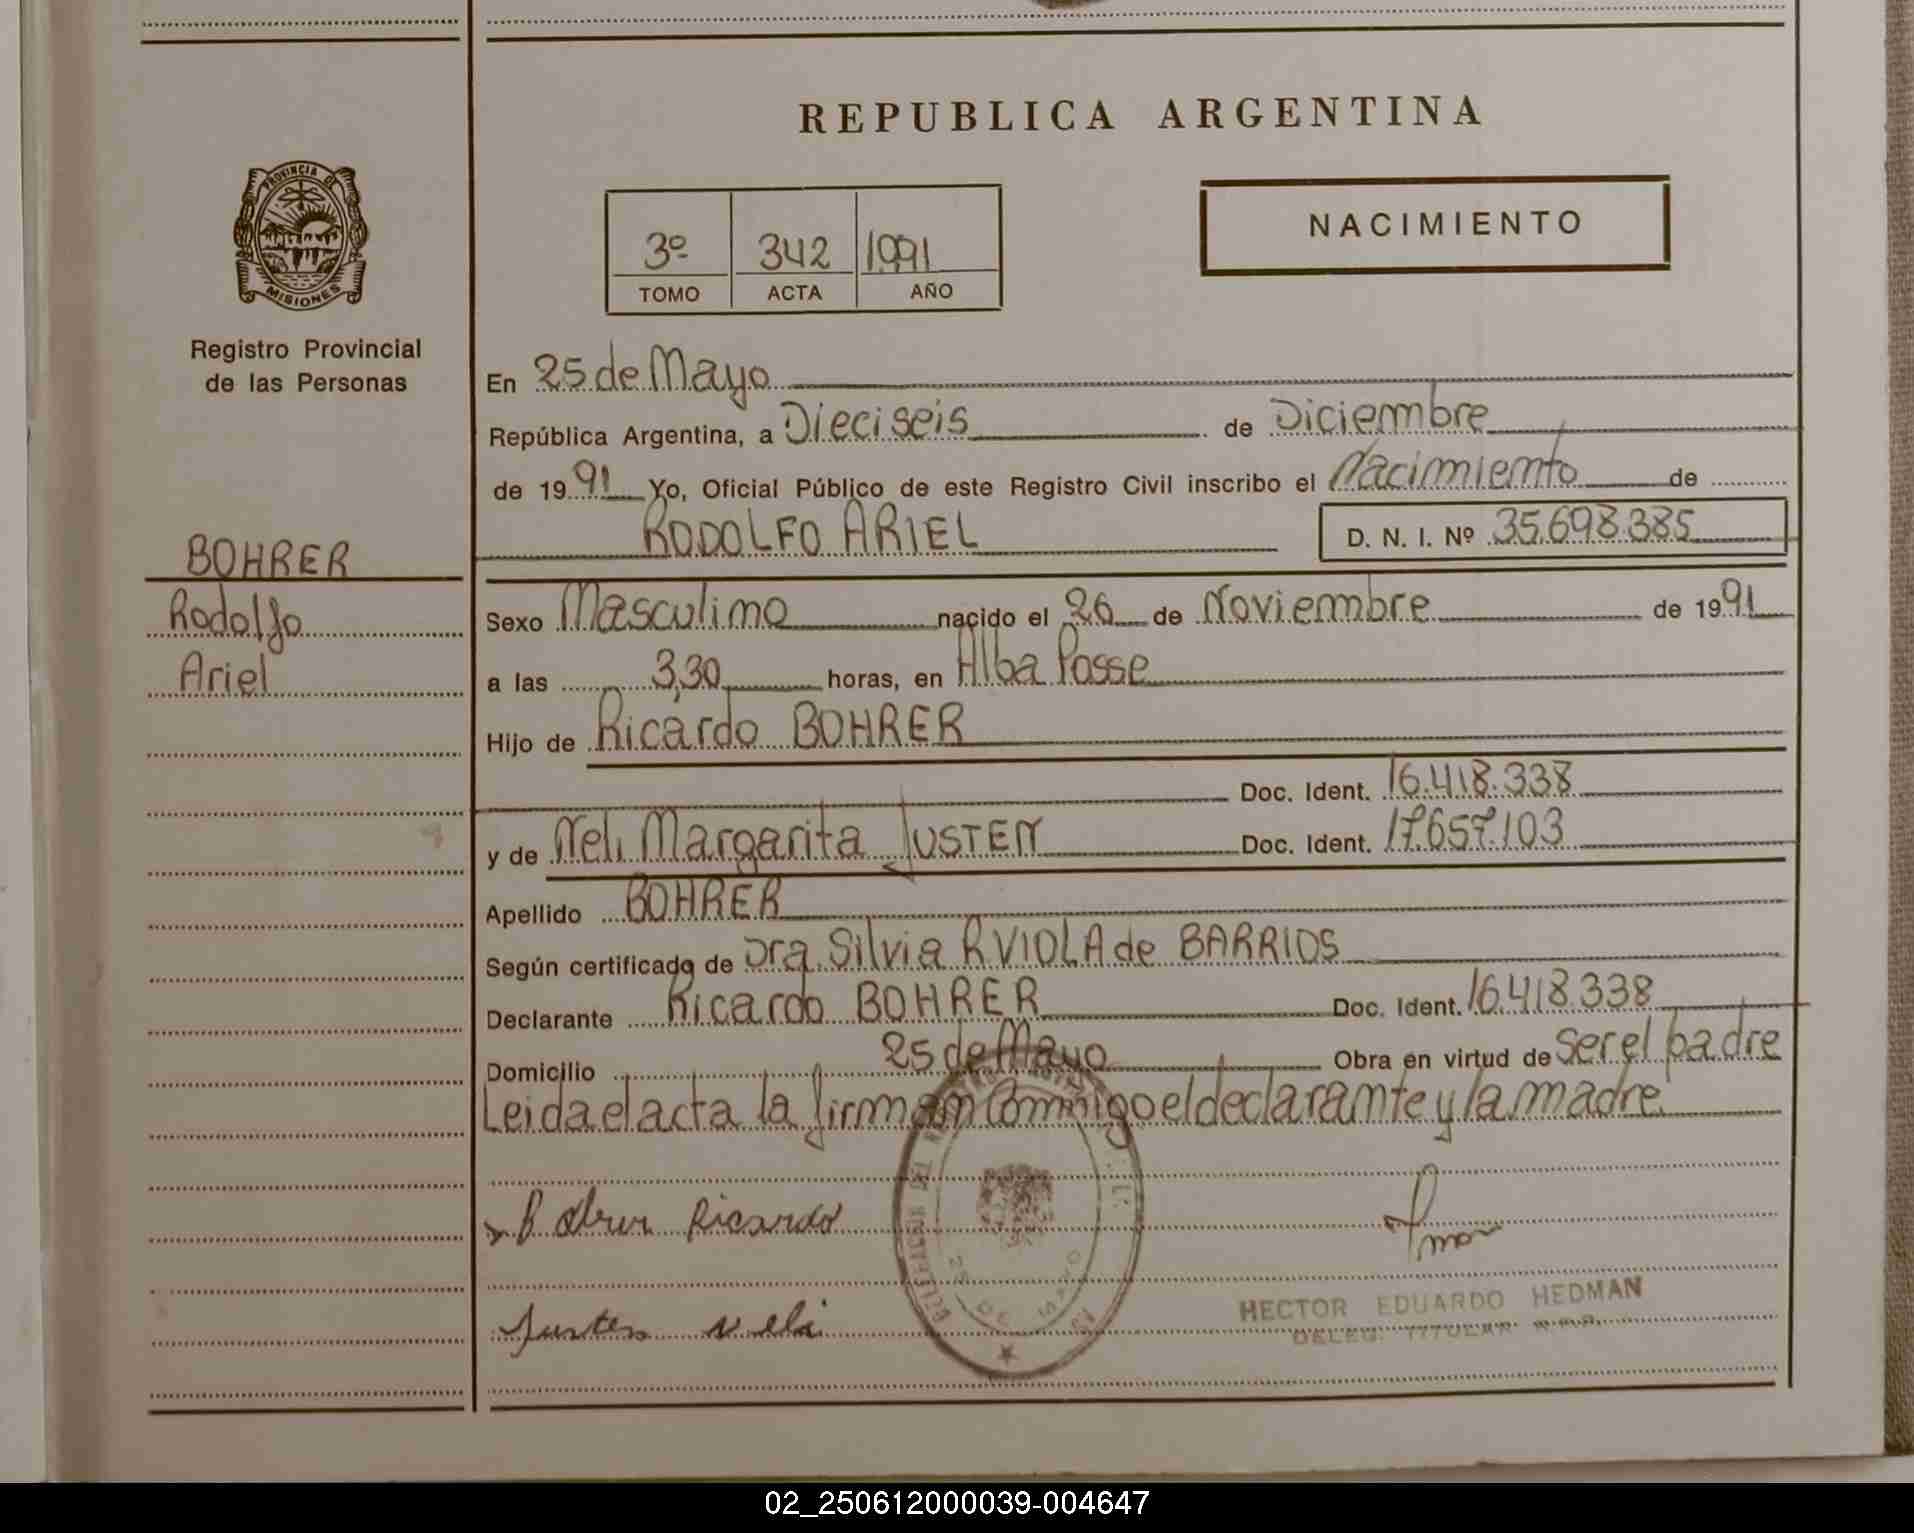 REPUBLICA ARGENTINA
PROVINCIA DE
MISIONES
Registro Provincial
de las Personas
NACIMIENTO
3º 342 1991
TOMO ACTA AÑO
En 25 de Mayo
República Argentina, a Dieciseis de Diciembre
de 1991 Yo, Oficial Público de este Registro Civil inscribo el Nacimiento de
RODOLFO ARIEL D. N. I. Nº 35.698.385
BOHRER
Rodolfo
Ariel
Sexo Masculino nacido el 26 de Noviembre de 1991
a las 3,30 horas, en Alba Posse
Hijo de Ricardo BOHRER
Doc. Ident. 16.418.338
y de Neli Margarita JUSTEN Doc. Ident. 17.657.103
Apellido BOHRER
Según certificado de Dra. Silvia R VIOLA de BARRIOS
Declarante Ricardo BOHRER Doc. Ident. 16.418.338
Domicilio 25 de Mayo Obra en virtud de ser el padre
Leida el acta la firman Conmigo el declarante y la madre
Ricardo
25 DE MAYO
Justen neli
HECTOR EDUARDO HEDMAN
DELEG. TITULAR R.P.P.
02_250612000039-004647